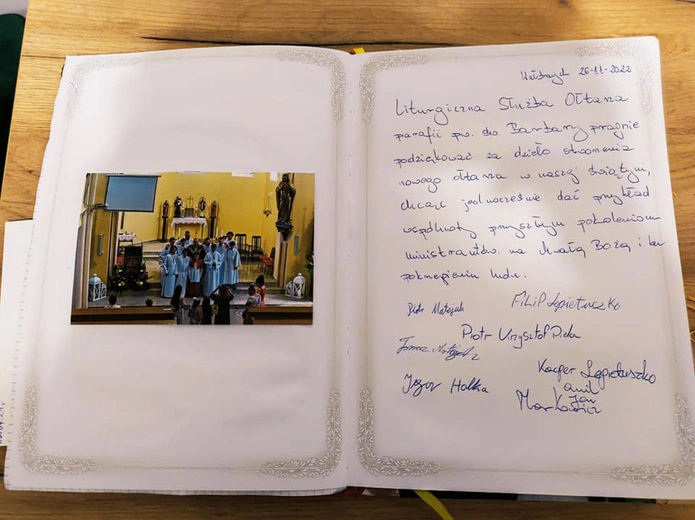 Wałbrzych 26-11-2022
Liturgiczna Służba Ołtarza
parafii pw. św. Barbary pragnie
podziękować za dzieło stworzenia
nowego ołtarza w naszej świątyni,
chcąc jednocześnie dać przykład
wspólnoty przyszłym pokoleniom
ministrantów. na Chwałą Bożą i ku
pokrzepieniu ludu.
Piotr Matejuk Filip Łopietuszko
Piotr Krzysztof
Igor Halka
Kacper Łopietuszko
Jan